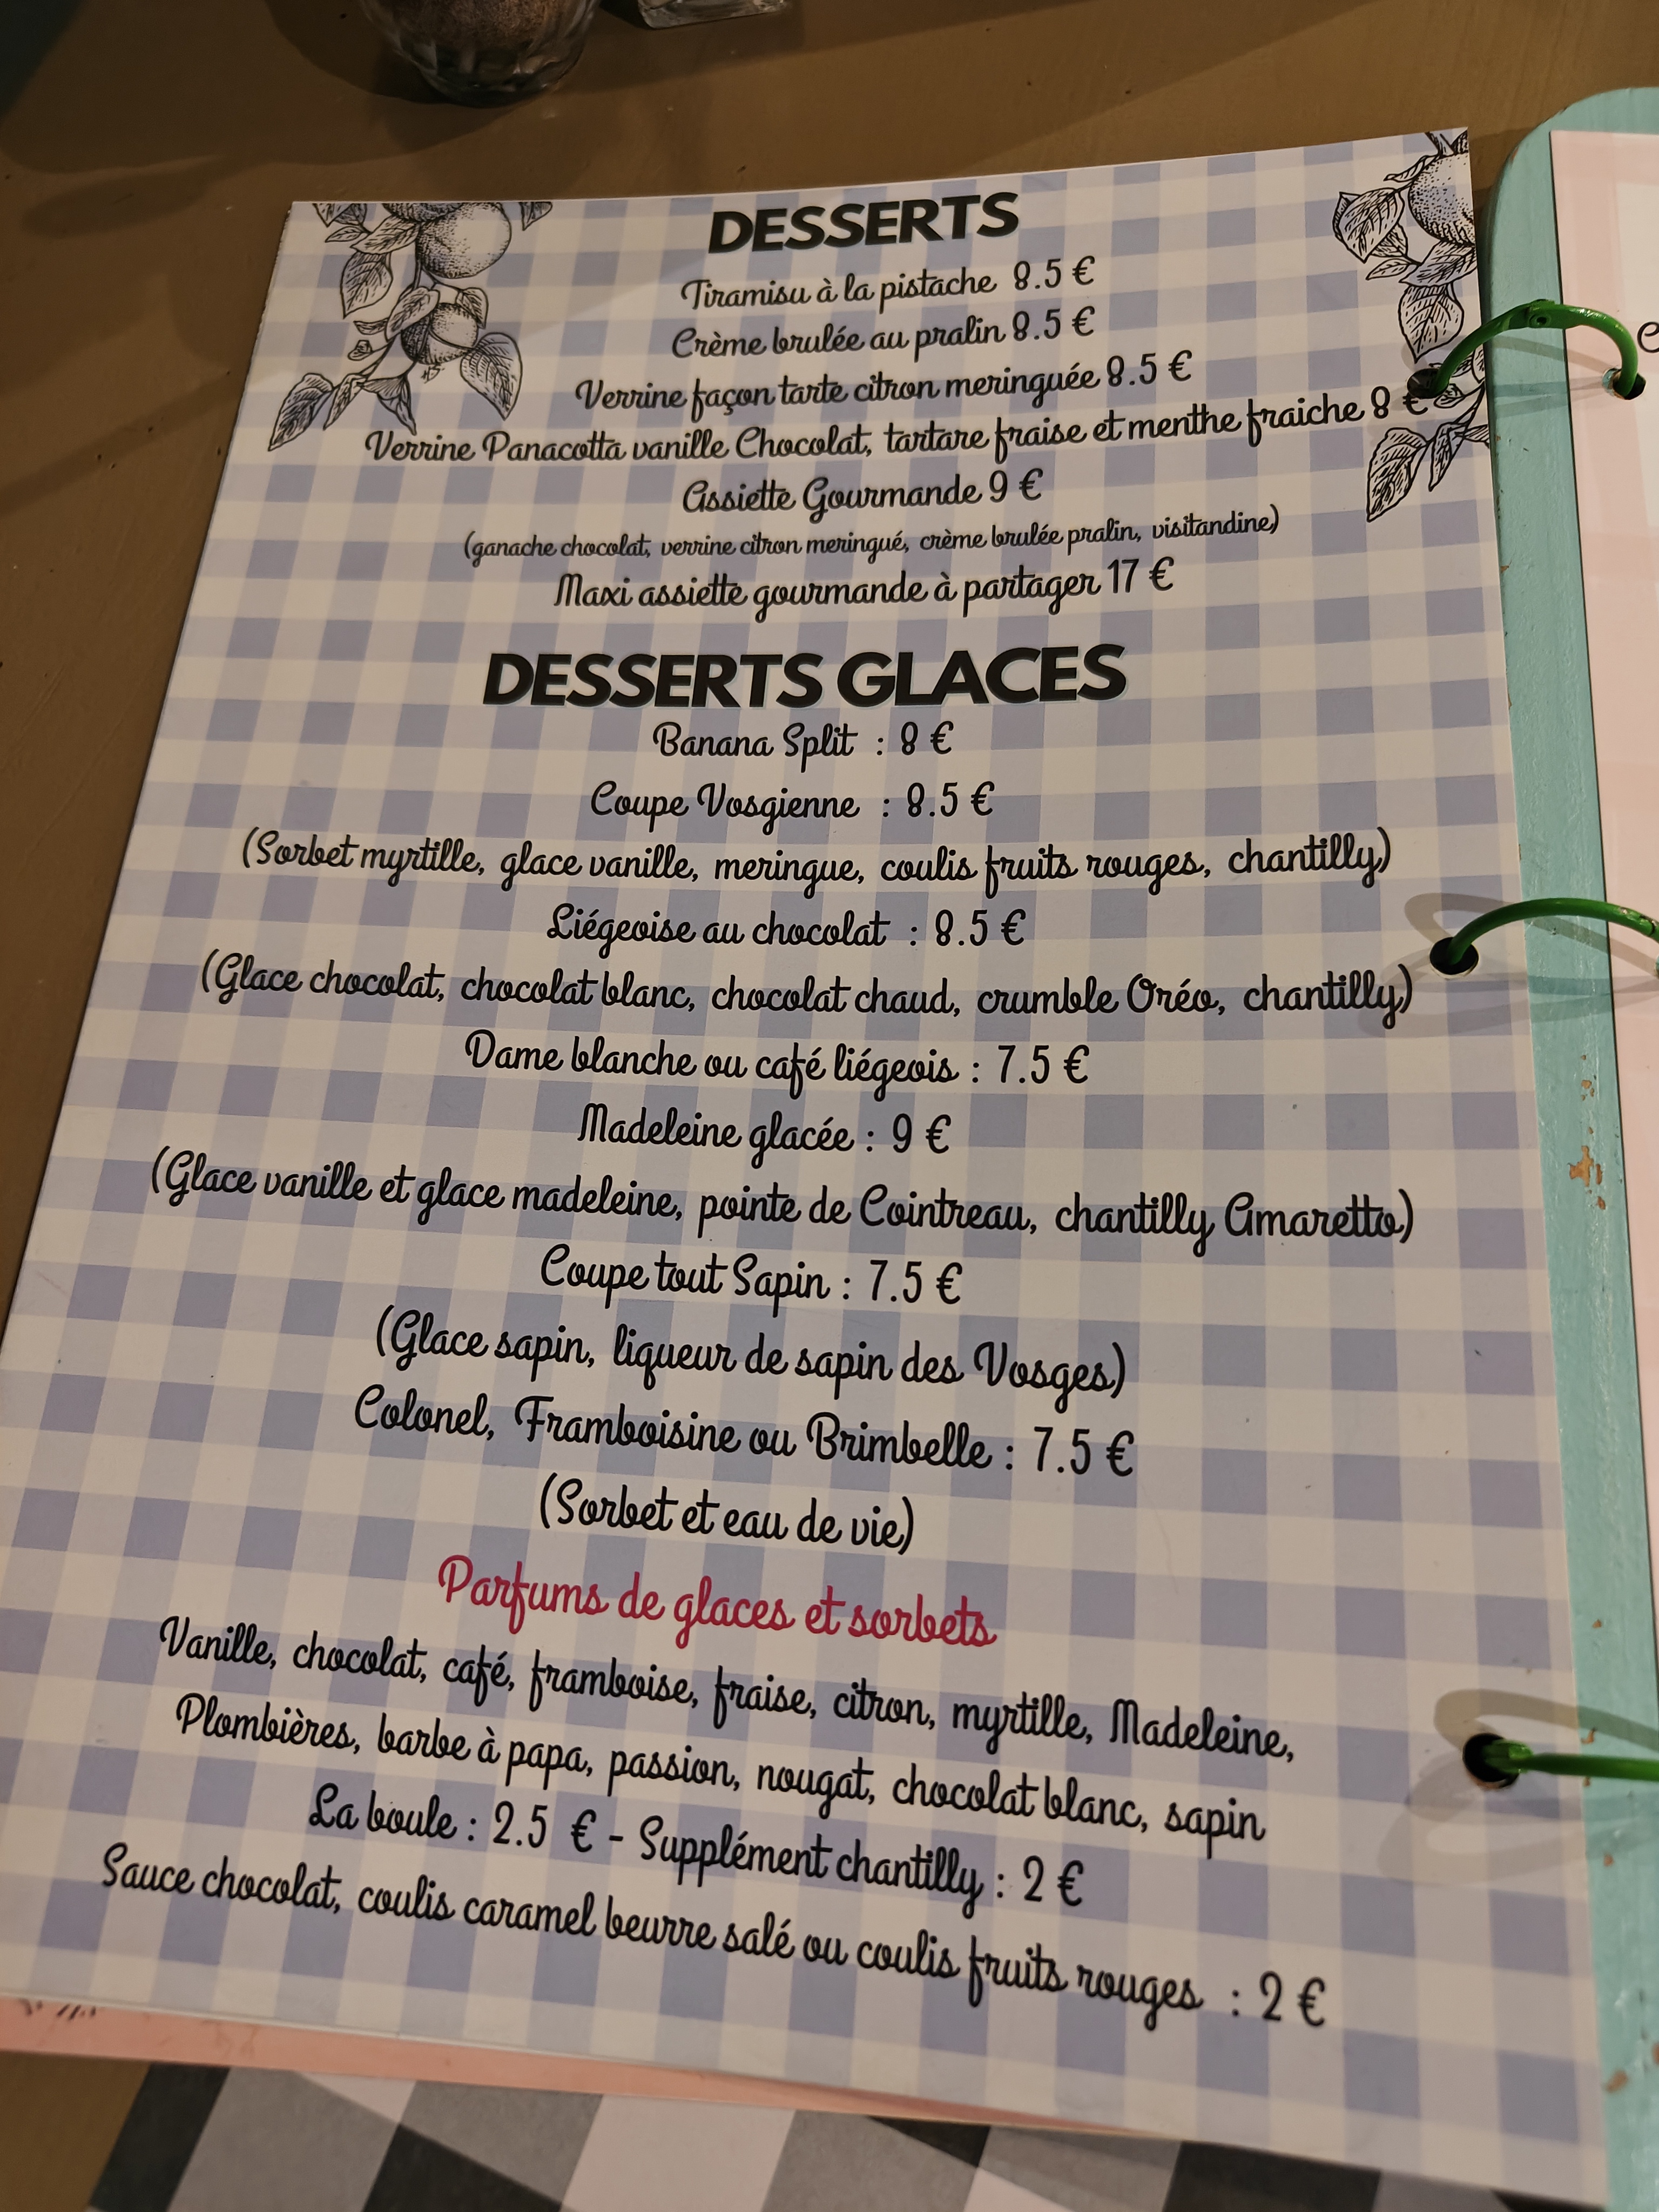 DESSERTS
Tiramisu à la pistache 8.5 €
Crème brulée au pralin 8.5 €
Verrine façon tarte citron meringuée 8.5 €
Verrine Panacotta vanille Chocolat, tartare fraise et menthe fraiche 8 €
Assiette Gourmande 9 €
(ganache chocolat, verrine citron meringué, crème brulée pralin, visitandine)
Maxi assiette gourmande à partager 17 €
DESSERTS GLACES
Banana Split : 8 €
Coupe Vosgienne : 8.5 €
(Sorbet myrtille, glace vanille, meringue, coulis fruits rouges, chantilly)
Liégeoise au chocolat : 8.5 €
(Glace chocolat, chocolat blanc, chocolat chaud, crumble Oréo, chantilly)
Dame blanche ou café liégeois : 7.5 €
Madeleine glacée : 9 €
(Glace vanille et glace madeleine, pointe de Cointreau, chantilly Amaretto)
Coupe tout Sapin : 7.5 €
(Glace sapin, liqueur de sapin des Vosges)
Colonel, Framboisine ou Brimbelle : 7.5 €
(Sorbet et eau de vie)
Parfums de glaces et sorbets
Vanille, chocolat, café, framboise, fraise, citron, myrtille, Madeleine,
Plombières, barbe à papa, passion, nougat, chocolat blanc, sapin
La boule : 2.5 € - Supplément chantilly : 2 €
Sauce chocolat, coulis caramel beurre salé ou coulis fruits rouges : 2 €